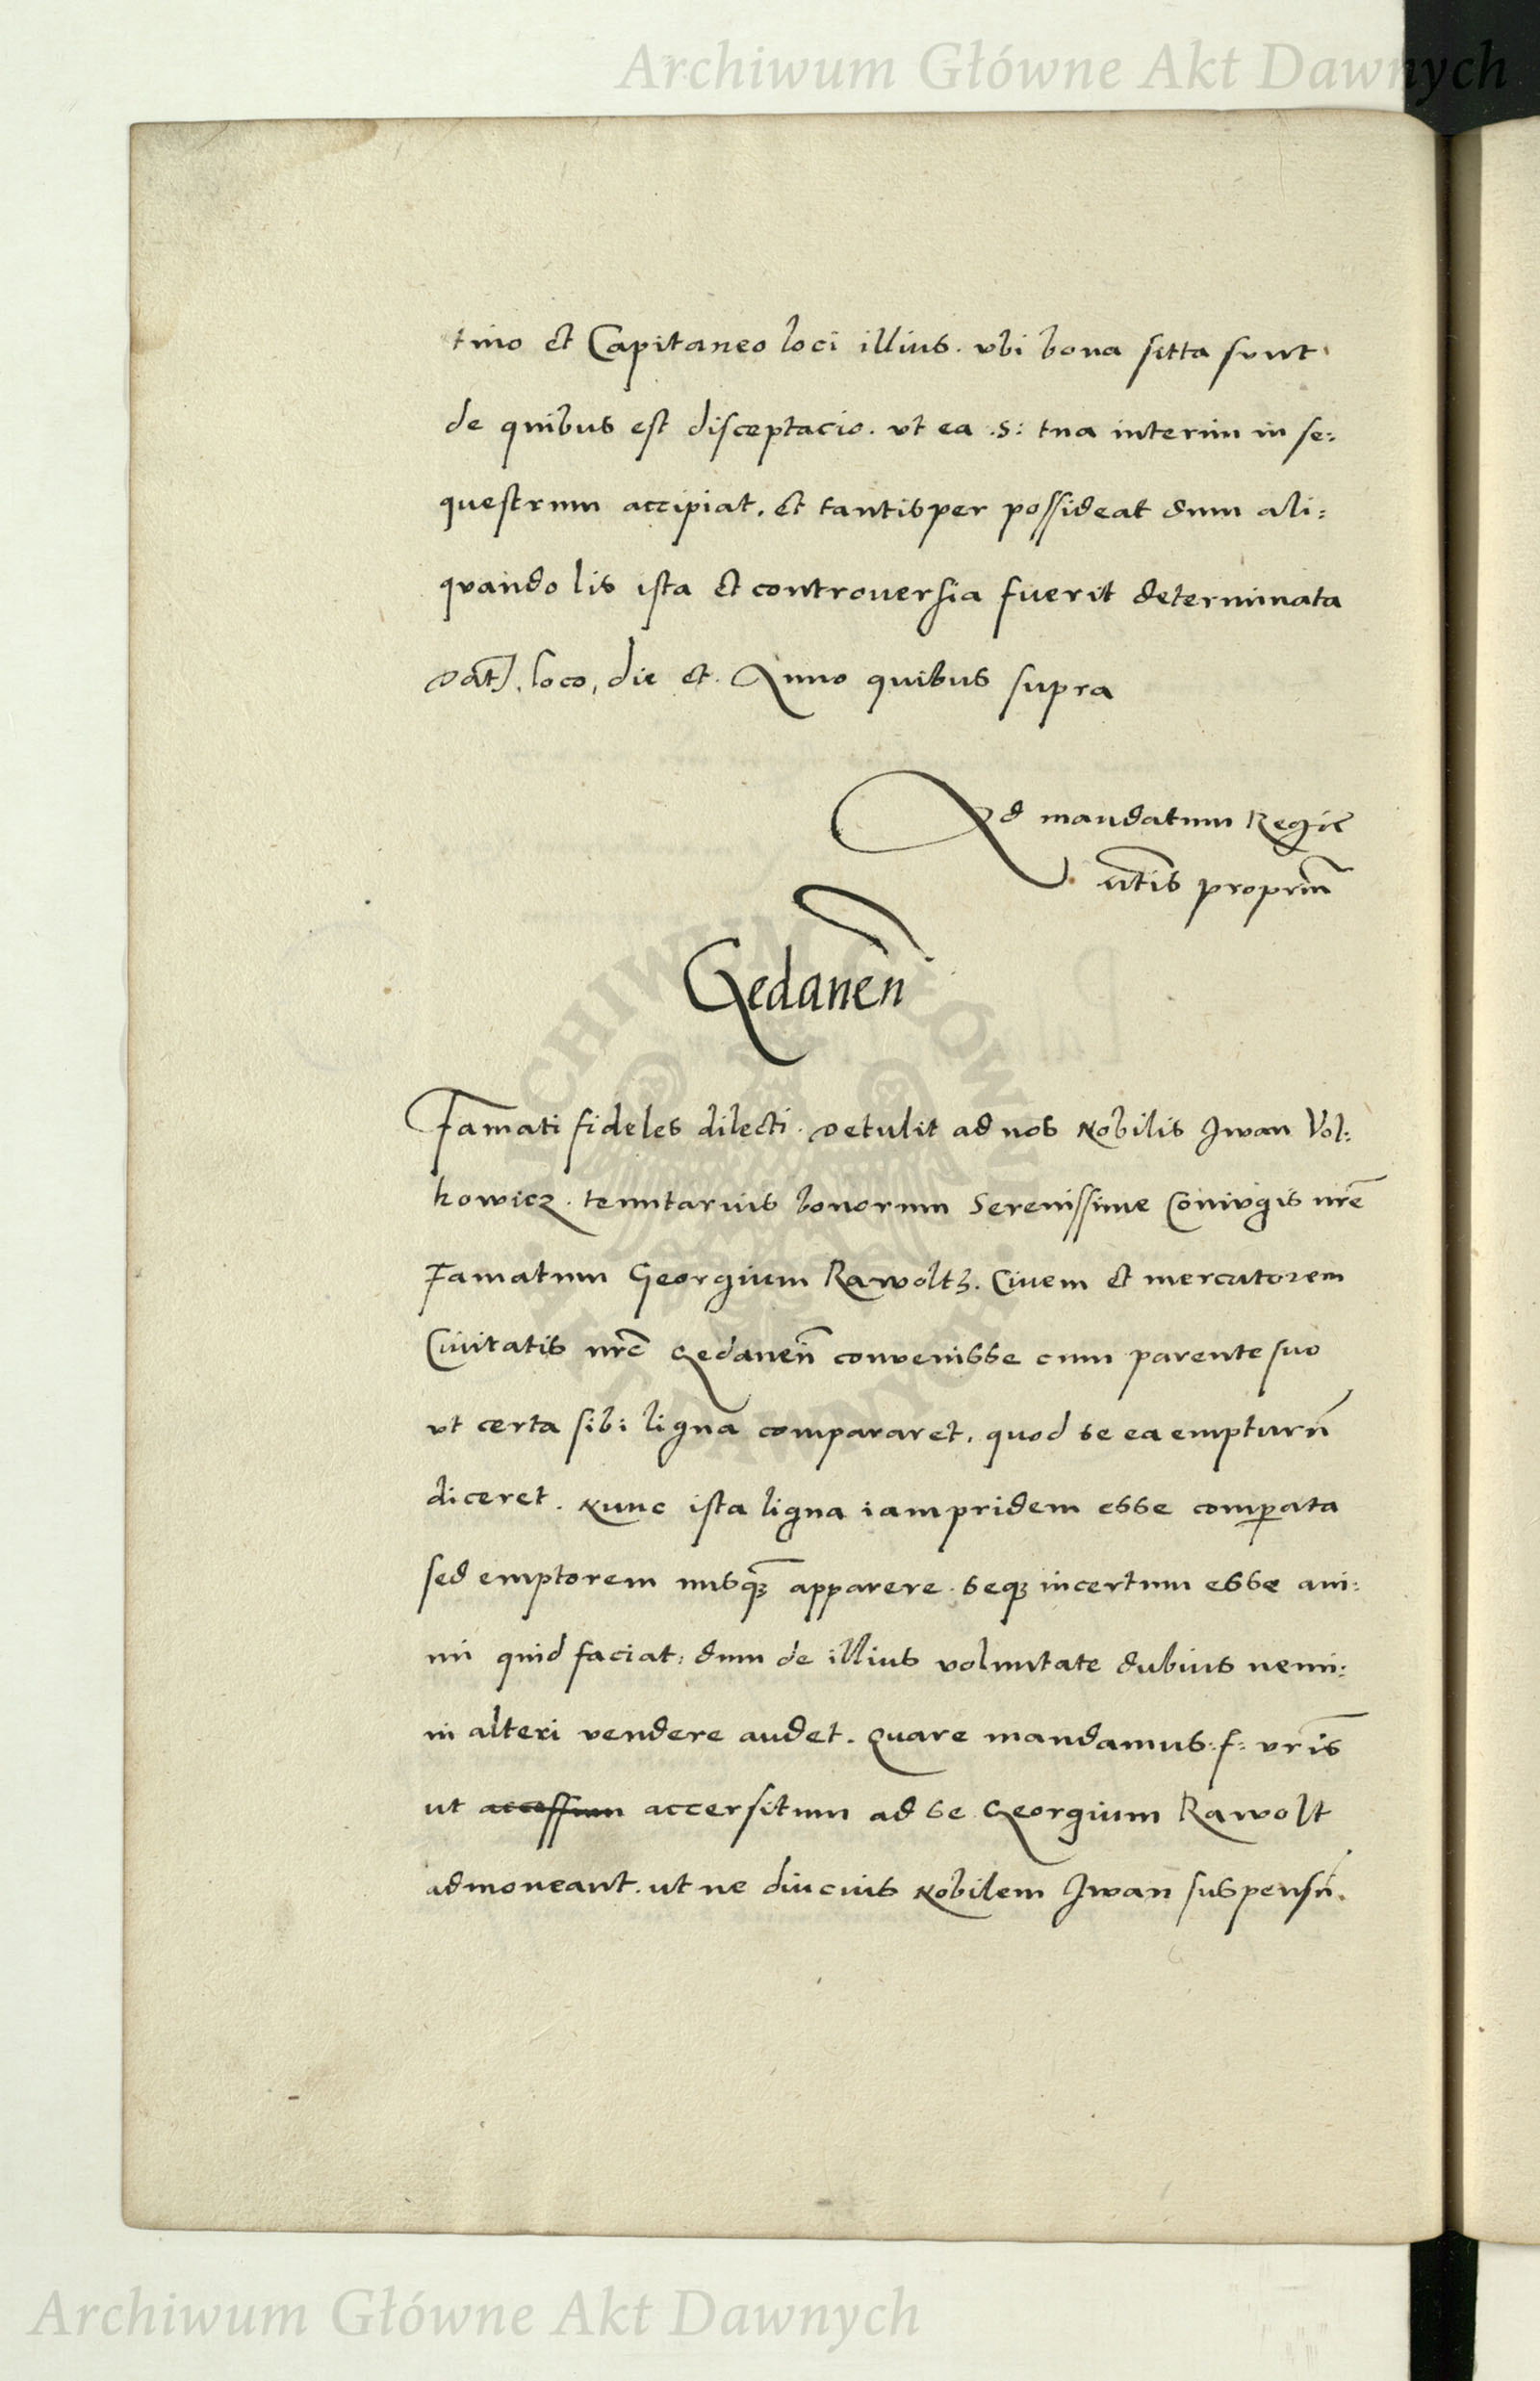 Archiwum Główne Akt Dawnych
tino et Capitaneo loci illius. vbi bona sitta sunt
de quibus est disceptacio. vt ea .S: tua interim in se:
questrum accipiat. et tantisper possideat dum ali:
quando lis ista et controuersia fuerit determinata
Dat, loco, die et. Anno quibus supra
Ad mandatum Regie
mtis proprium
Gedanen
Famati fideles dilecti. Detulit ad nos Nobilis Jwan Vol:
kowicz. tenutarius bonorum Serenissime Coniugis nre
Famatum Georgium Rawolth. Ciuem et mercatorem
Ciuitatis nre Gedanen convenisse cum parente suo
vt certa sibi ligna compararet. quod se ea empturu
diceret. Nunc ista ligna iampridem esse comparata
sed emptorem nusq apparere. seq incertum esse ani:
mi quid faciat: dum de illius voluntate dubius nemi:
ni alteri vendere audet. Quare mandamus: f: vris
ut accessum accersitum ad se Georgium Rawolt
admoneant. ut ne diucius Nobilem Jwan suspensu.
ARCHIWUM GŁÓWNE AKT DAWNYCH
Archiwum Główne Akt Dawnych